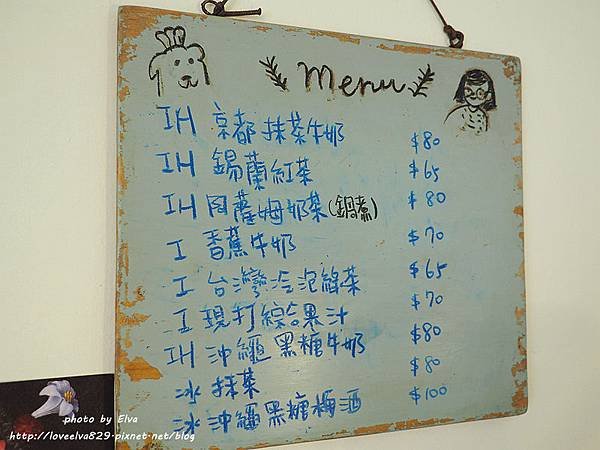 menu
IH 京都抹茶牛奶 $80
IH 錫蘭紅茶 $65
IH 阿薩姆奶茶(鍋煮) $80
I 香蕉牛奶 $70
I 台灣冷泡綠茶 $65
I 現打綜合果汁 $70
IH 沖繩黑糖牛奶 $80
冰 抹茶 $80
冰 沖繩黑糖梅酒 $100
photo by Elva
http://loveelva829.pixnet.net/blog